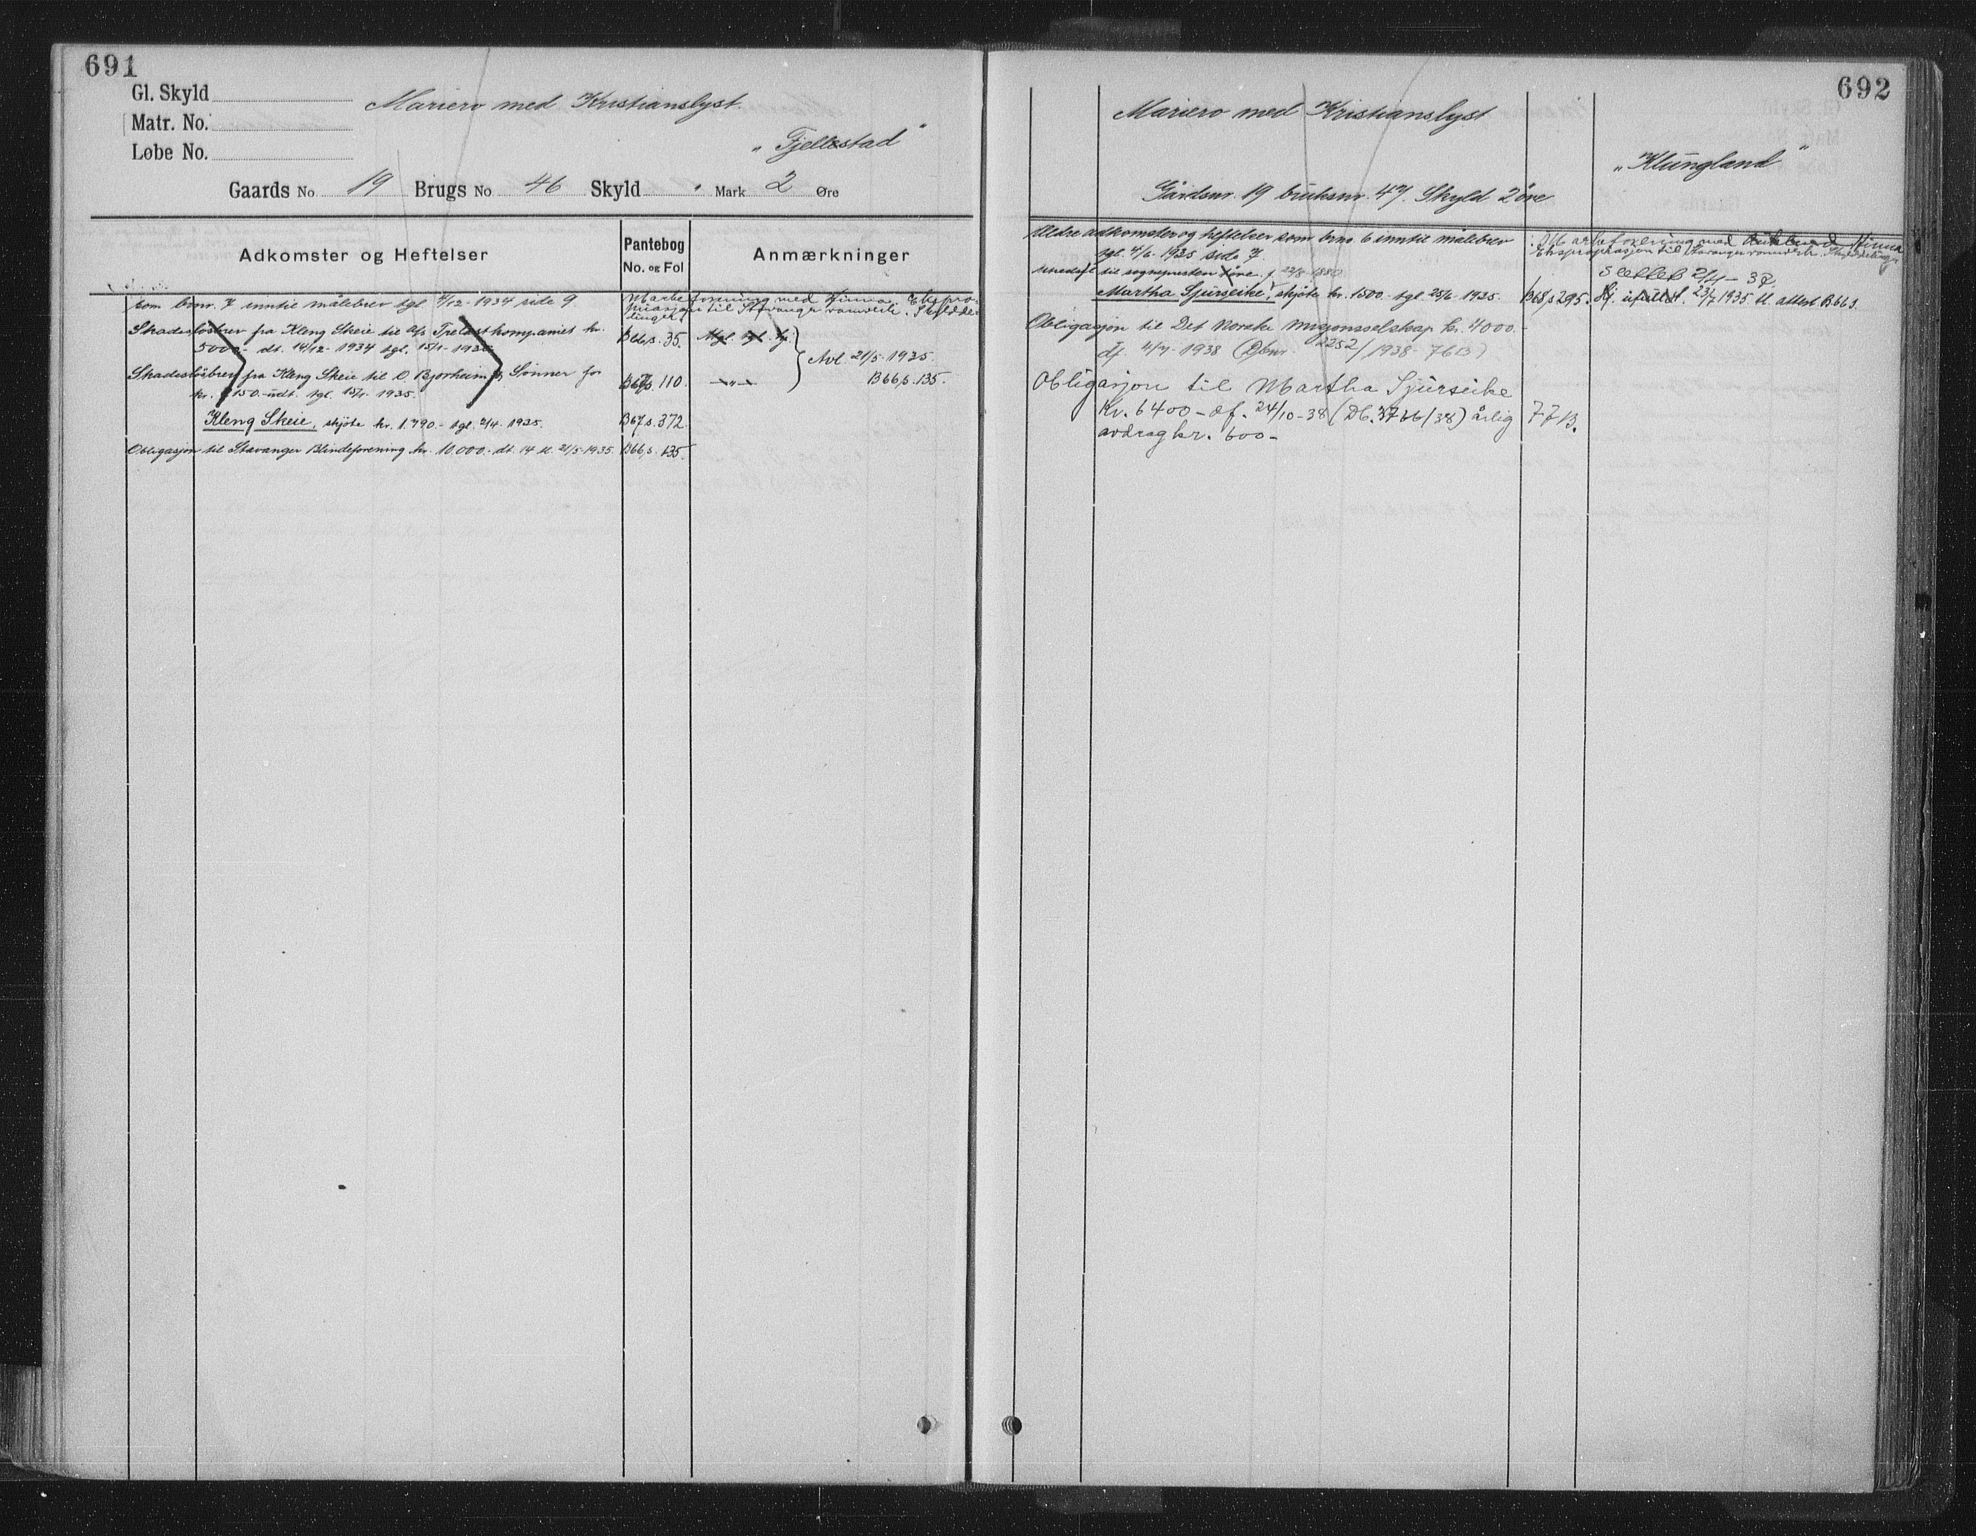 691
Gl. Skyld
Matr. No.
Løbe No.
Mariero med Kristianslyst.
„Fjellestad"
Gaards No 19 Brugs No 46 Skyld " Mark 2 Øre
Adkomster og Heftelser
Pantebog
No. og Fol
Anmærkninger
som brnr. 7 inntil målebrev tgl. 4/12-1934 side 9
Skadesløsbrev fra Kleng Skeie til a/s Trelastkompaniet kr.
5000.- dt. 14/12-1934 tgl. 15/1-1935
s. 35.
Skadesløsbrev fra Kleng Skeie til O. Bjorheim & Sønner for
kr. 150.- udt. tgl. 1935.
s. 110.
Avl 21/5-1935.
B66, s. 135.
Kleng Skeie, skjøte kr. 1.790.- tgl. 2/4 1935.
B67, s. 372.
Obligasjon til Stavanger Blindeforening kr. 10.000.- dt. 14 tl. 21/5-1935.
B66, s. 135.
692
Mariero med Kristianslyst
„Klungland"
Gårdsnr. 19 bruksnr. 47. Skyld 2 øre
Eldre adkomster og heftelser som brno. 6 inntil målebrev
tgl. 4/6-1935 side 7.
til sognepresten
Martha Sjurseike, skjøte kr. 1500.- tgl. 25/6-1935.
B68, s 295.
slettet 2/4-37.
23/7 1935
Obligasjon til Det norske misjonsselskap kr. 4000.-
df. 4/7-1938 (Dbnr. 2252/1938-76B)
Obligasjon til Martha Sjurseike
Kr. 6400- df. 24/10-38 (Db. 3766/38) årlig
avdrag kr. 600-
77B.